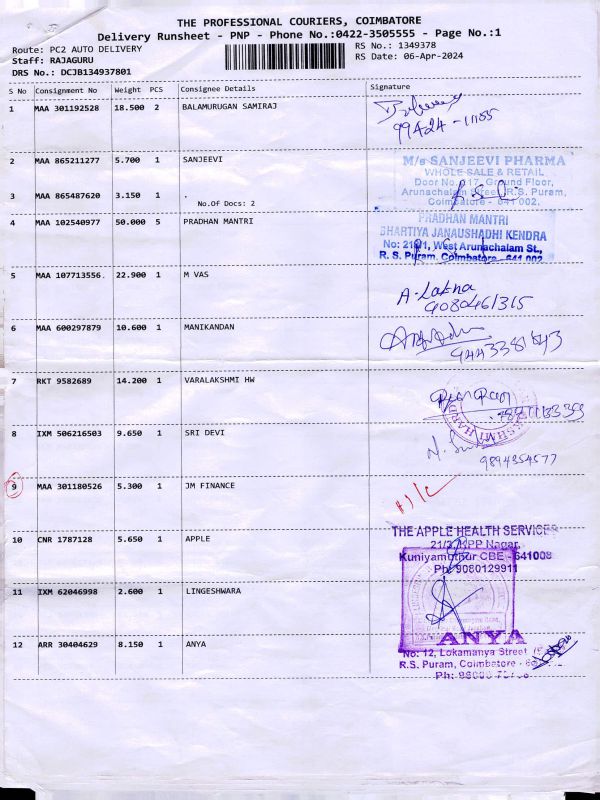 THE PROFESSIONAL COURIERS, COIMBATORE
Delivery Runsheet - PNP - Phone No.:0422-3505555 - Page No.:1
Route: PC2 AUTO DELIVERY
RS No.: 1349378
Staff: RAJAGURU
RS Date: 06-Apr-2024
DRS No.: DCJB134937801
S No Consignment No Weight PCS Consignee Details Signature
1 MAA 301192528 18.500 2 BALAMURUGAN SAMIRAJ
99424-11185
2 MAA 865211277 5.700 1 SANJEEVI
M/s SANJEEVI PHARMA
WHOLE SALE & RETAIL
Ground Floor,
Arunachalam Street, R.S. Puram,
Coimbatore - 641 002.
3 MAA 865487620 3.150 1 .
No.Of Docs: 2
4 MAA 102540977 50.000 5 PRADHAN MANTRI
PRADHAN MANTRI
BHARTIYA JANAUSHADHI KENDRA
West Arunachalam St.,
R. S. Puram, Coimbatore - 641 002
5 MAA 107713556. 22.900 1 M VAS
9080461315
6 MAA 600297879 10.600 1 MANIKANDAN
7 RKT 9582689 14.200 1 VARALAKSHMI HW
8 IXM 506216503 9.650 1 SRI DEVI
9894354577
9 MAA 301180526 5.300 1 JM FINANCE
10 CNR 1787128 5.650 1 APPLE
THE APPLE HEALTH SERVICES
KPP Nagar,
Kuniyamuthur CBE - 641008
Ph: 9080129911
11 IXM 62046998 2.600 1 LINGESHWARA
12 ARR 30404629 8.150 1 ANYA
ANYA
No: 12, Lokamanya Street
R.S. Puram, Coimbatore -
Ph: